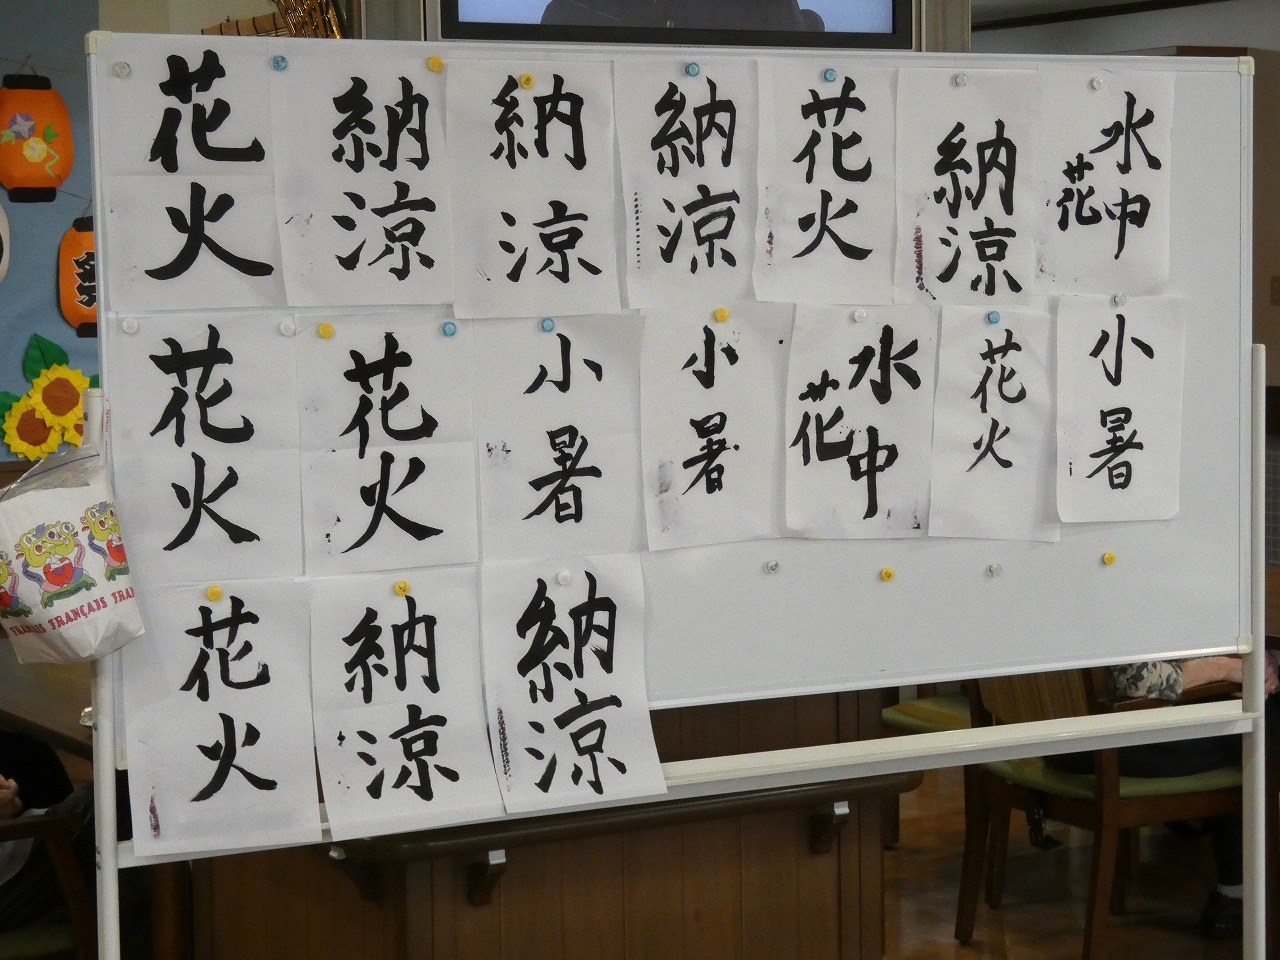 花火
納涼
納涼
納涼
花火
納涼
水中
花
花火
花火
小暑
小暑
水中
花
花火
小暑
花火
納涼
納涼
FRANÇAIS